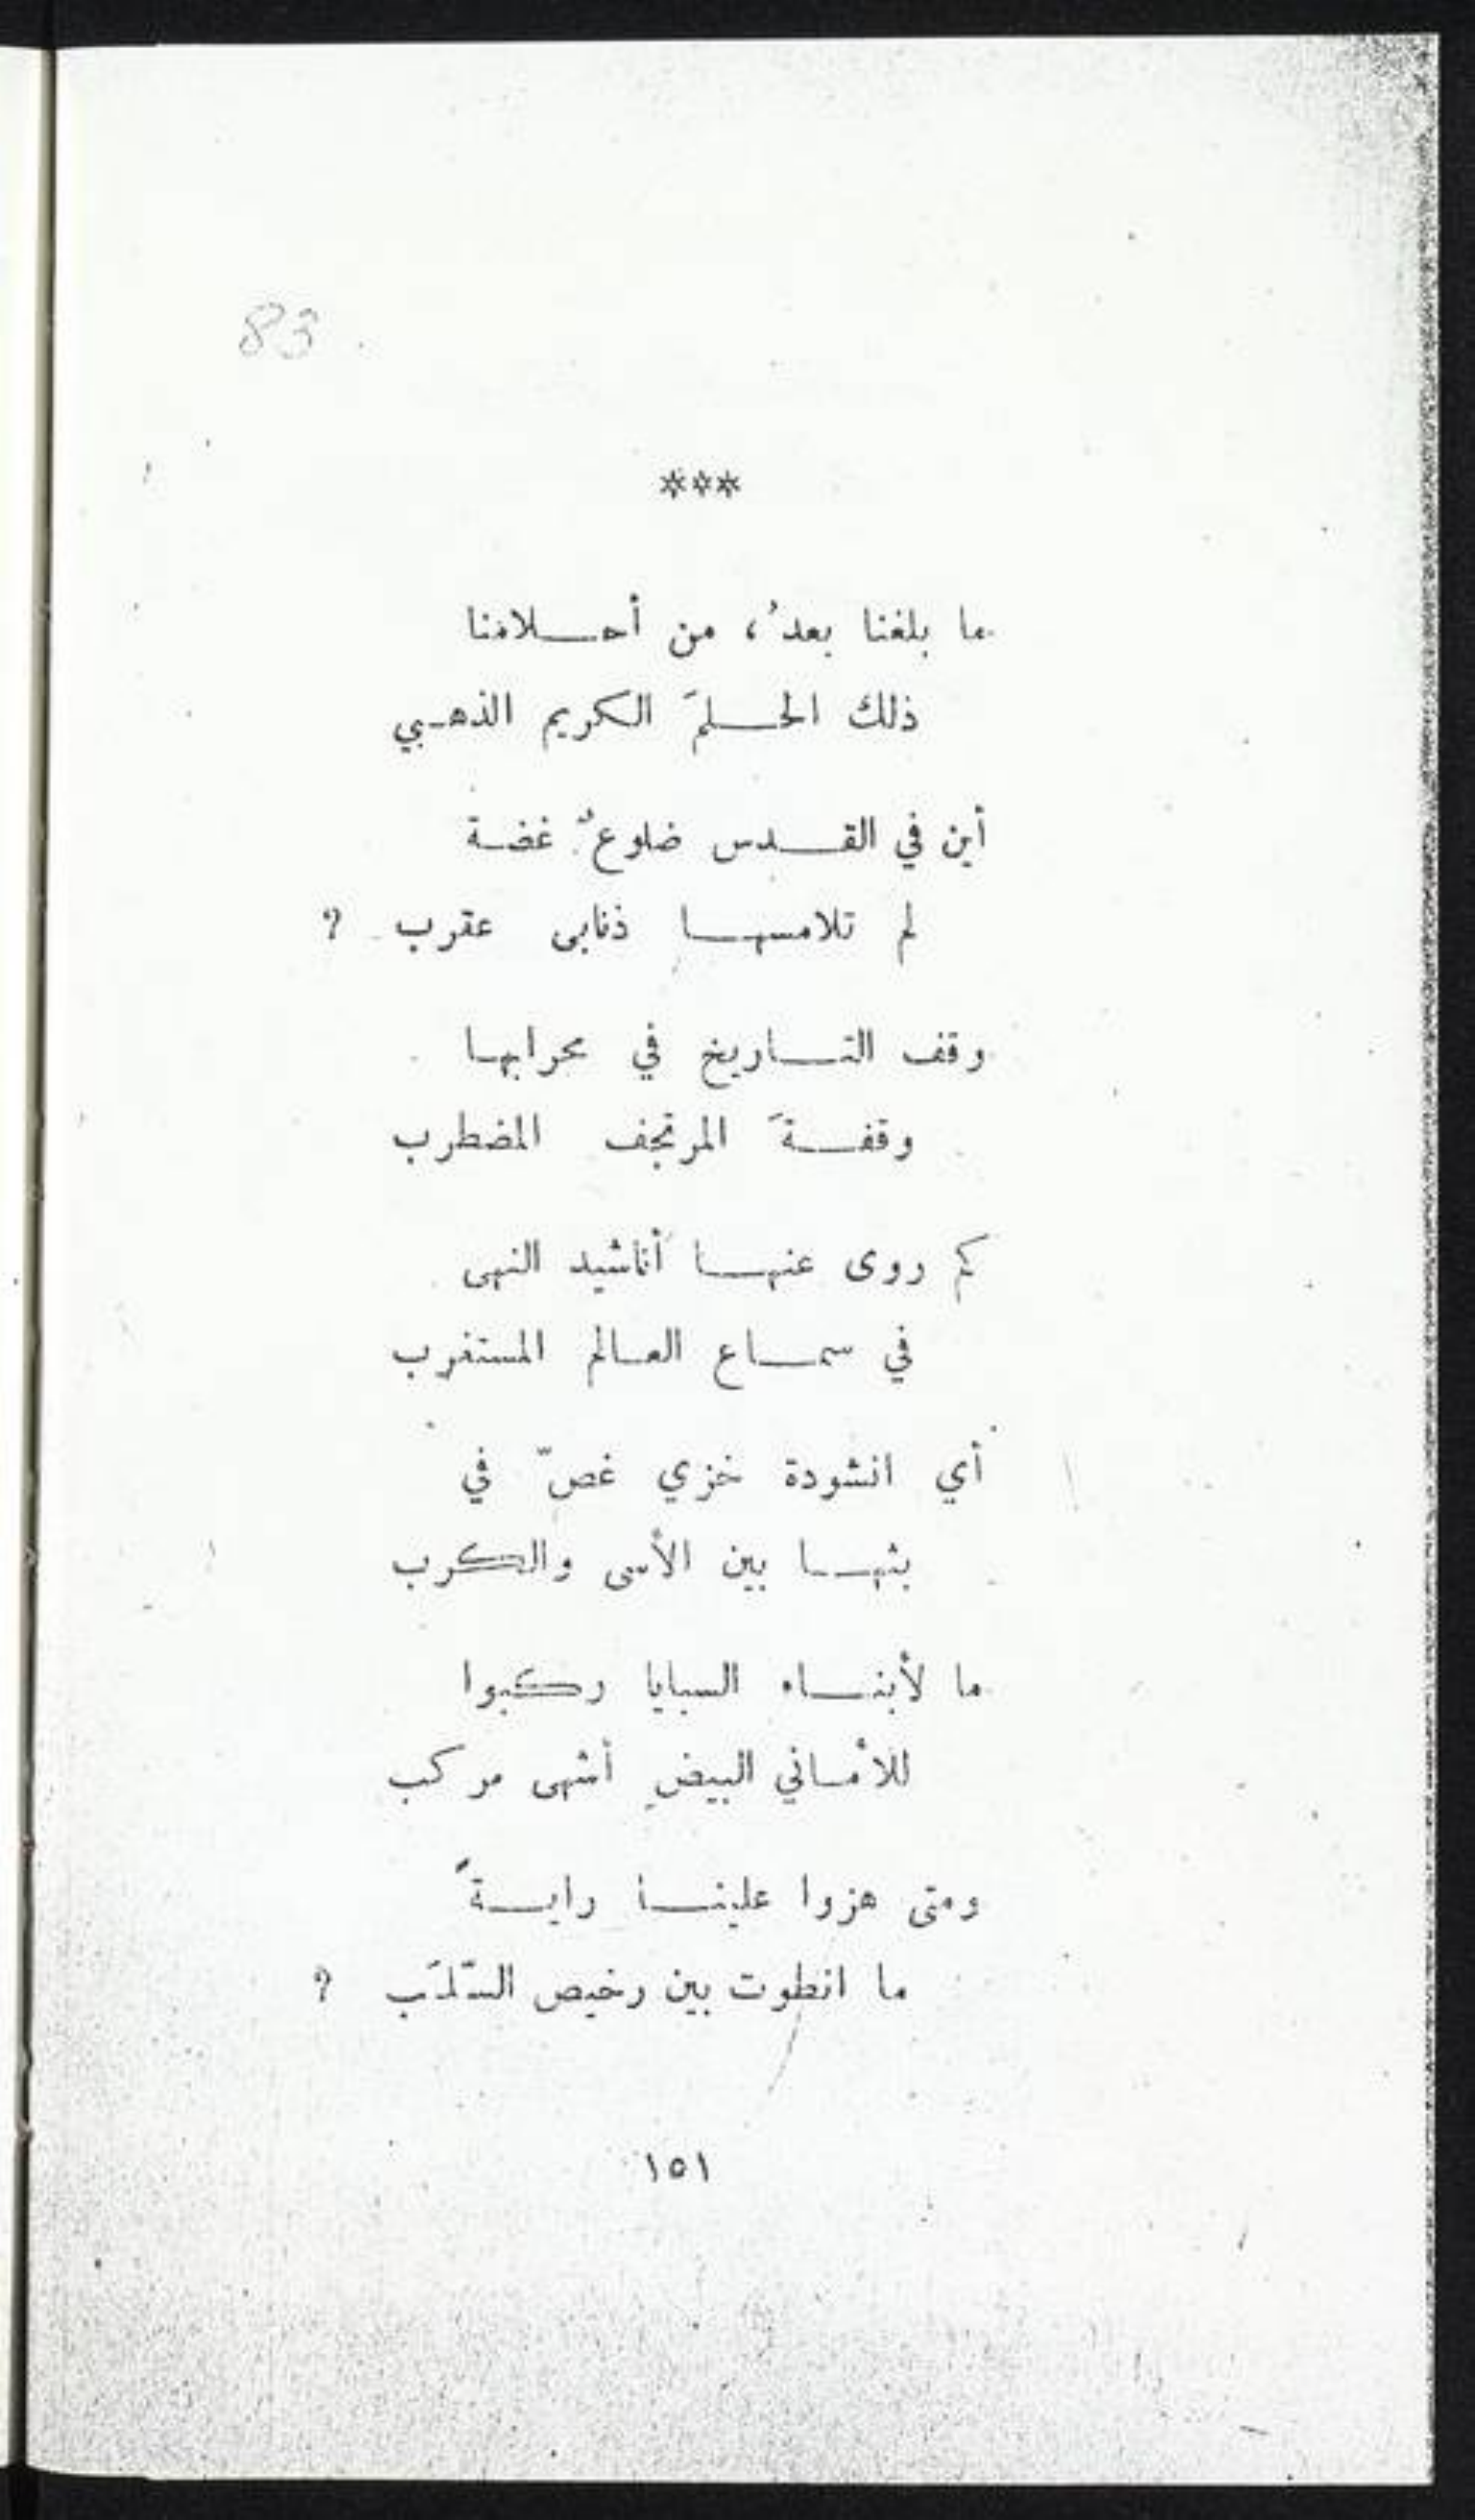 83
***
ما بلغنا بعدُ، من أحـلامنا
ذلك الحـلمَ الكريم الذهبي
أين في القـدس ضلوعٌ غضة
لم تلامسهـا ذنابى عقرب ؟
وقف التـاريخ في محرابها
وقفـةَ المرتجف المضطرب
كم روى عنهـا أناشيد النهى
في سمـاع العـالم المستغرب
أي انشودة خزي غصّ في
بثهـا بين الأسى والكرب
ما لأبنـاء السبايا ركبوا
للأمـاني البيضِ أشهى مركب
ومتى هزوا علينـا رايـةً
ما انطوت بين رخيص السّلَب ؟
١٥١